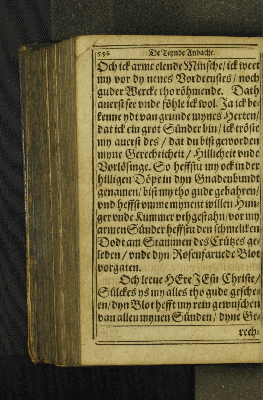 556 De Teynde Andacht.
Och ick arme elende Minsche / ick weet
my vor dy nenes Vordenstes / noch
guder Wercke tho röhmende. Dath
auerst see vnde föhle ick wol. Ja ick be-
kenne ydt van grunde mynes Herten /
dat ick ein grot Sünder bin / ick tröste
my auerst des / dat du bist geworden
myne Gerechticheit / Hillicheit vnde
Vorlösinge. So hefftu my ock in der
hilligen Döpe in dyn Gnadenbundt
genamen / bist my tho gude gebahren /
vnd heffst vmme mynent willen Hun-
ger vnde Kummer vthgestahn / vor my
armen Sünder heffstu den schmeliken
Dodt am Stammen des Crützes ge-
leden / vnde dyn Rosenfarwede Blot
vorgaten.
Och leeue HEre JEsu Christe /
Sülckes ys my alles tho gude gesche-
en / dyn Blot hefft my rein gewuschen
van allen mynen Sünden / dyne Ge-
rech-